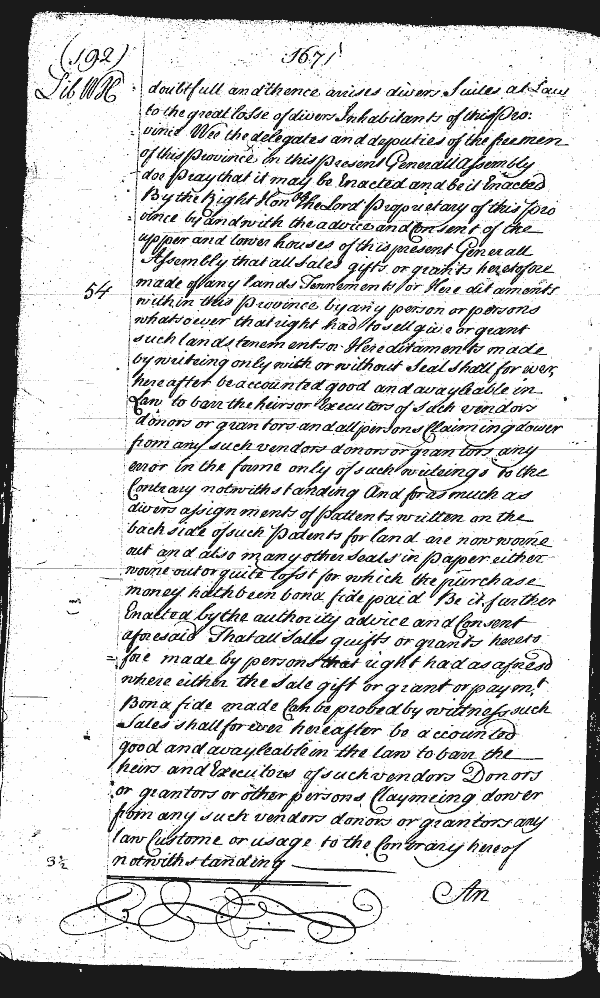 (192)
1671
Lib WH
doubtfull and thence arises divers Suites at Law
to the great losse of divers Inhabitants of this Pro:
vince Wee the delegates and deputies of the freemen
of this Province in this present Generall Assembly
doe Pray that it may be Enacted and be it Enacted
By the Right Honble the Lord Proprietary of this Pro
vince by and with the advice and Consent of the
upper and lower houses of this present Generall
Assembly that all Sales gifts or grants heretofore
54
made of any lands Tennements or Hereditaments
within this Province by any person or persons
whatsoever that right had to sell give or grant
such lands tenements or Hereditaments made
by writeing only with or without Seal shall for ever
hereafter be accounted good and avayleable in
Law to barr the heirs or Executors of such vendors
donors or grantors and all persons Claiming dower
from any such vendors donors or grantors any
error in the forme only of such writeings to the
Contrary notwithstanding And for as much as
divers assignments of Pattents written on the
back side of such Patents for land are now worne
out and also many other Seals in paper either
worne out or quite losst for which the purchase
money hath been bona fide paid Be it further
Enacted by the authority advice and Consent
aforesaid That all Sales guifts or grants hereto
fore made by persons that right had as aforesd
where either the Sale gift or grant or paymt
Bona fide made Can be proved by wittness such
Sales shall for ever hereafter be accounted
good and avayleable in the law to barr the
heirs and Executors of such vendors Donors
or grantors or other persons Claymeing dower
from any such vendors donors or grantors any
law Custome or usage to the Contrary hereof
3½
notwithstanding
An